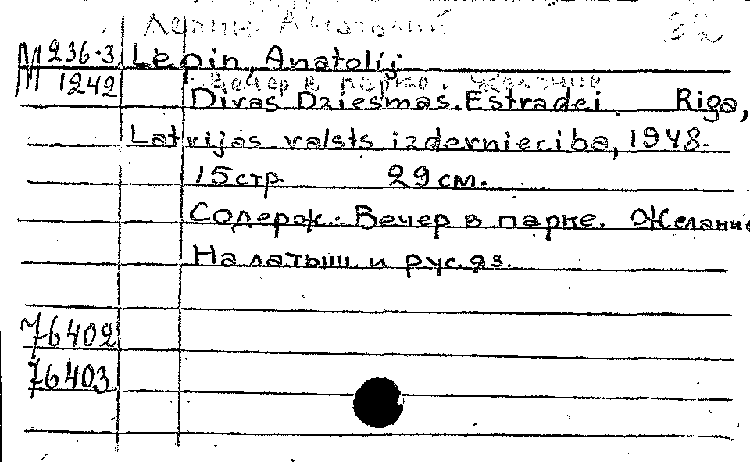 Лепин Анатолий 32
М 236-3 Lepin, Anatolij
1242 Вечер в парке. Желание
Divas Dziesmas. Estradei. Riga,
Latvijas valsts izdevnieciba, 1948.
15 стр. 29 см.
Содерж.: Вечер в парке. Желание
На латыш. и рус. яз.
76402
76403